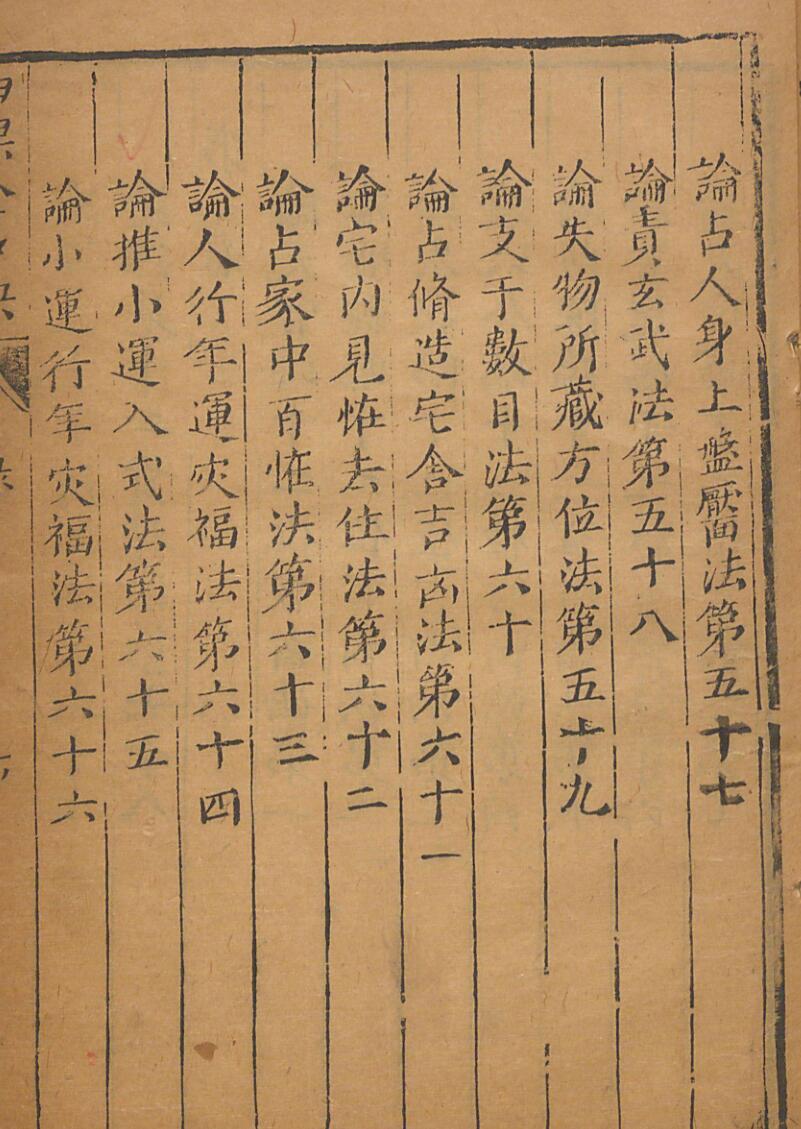 論占人身上盤黶法第五十七
論責玄武法第五十八
論失物所藏方位法第五十九
論支干數目法第六十
論占脩造宅舍吉凶法第六十一
論宅內見恠去住法第六十二
論占家中百恠法第六十三
論人行年運灾福法第六十四
論推小運入式法第六十五
論小運行年灾福法第六十六